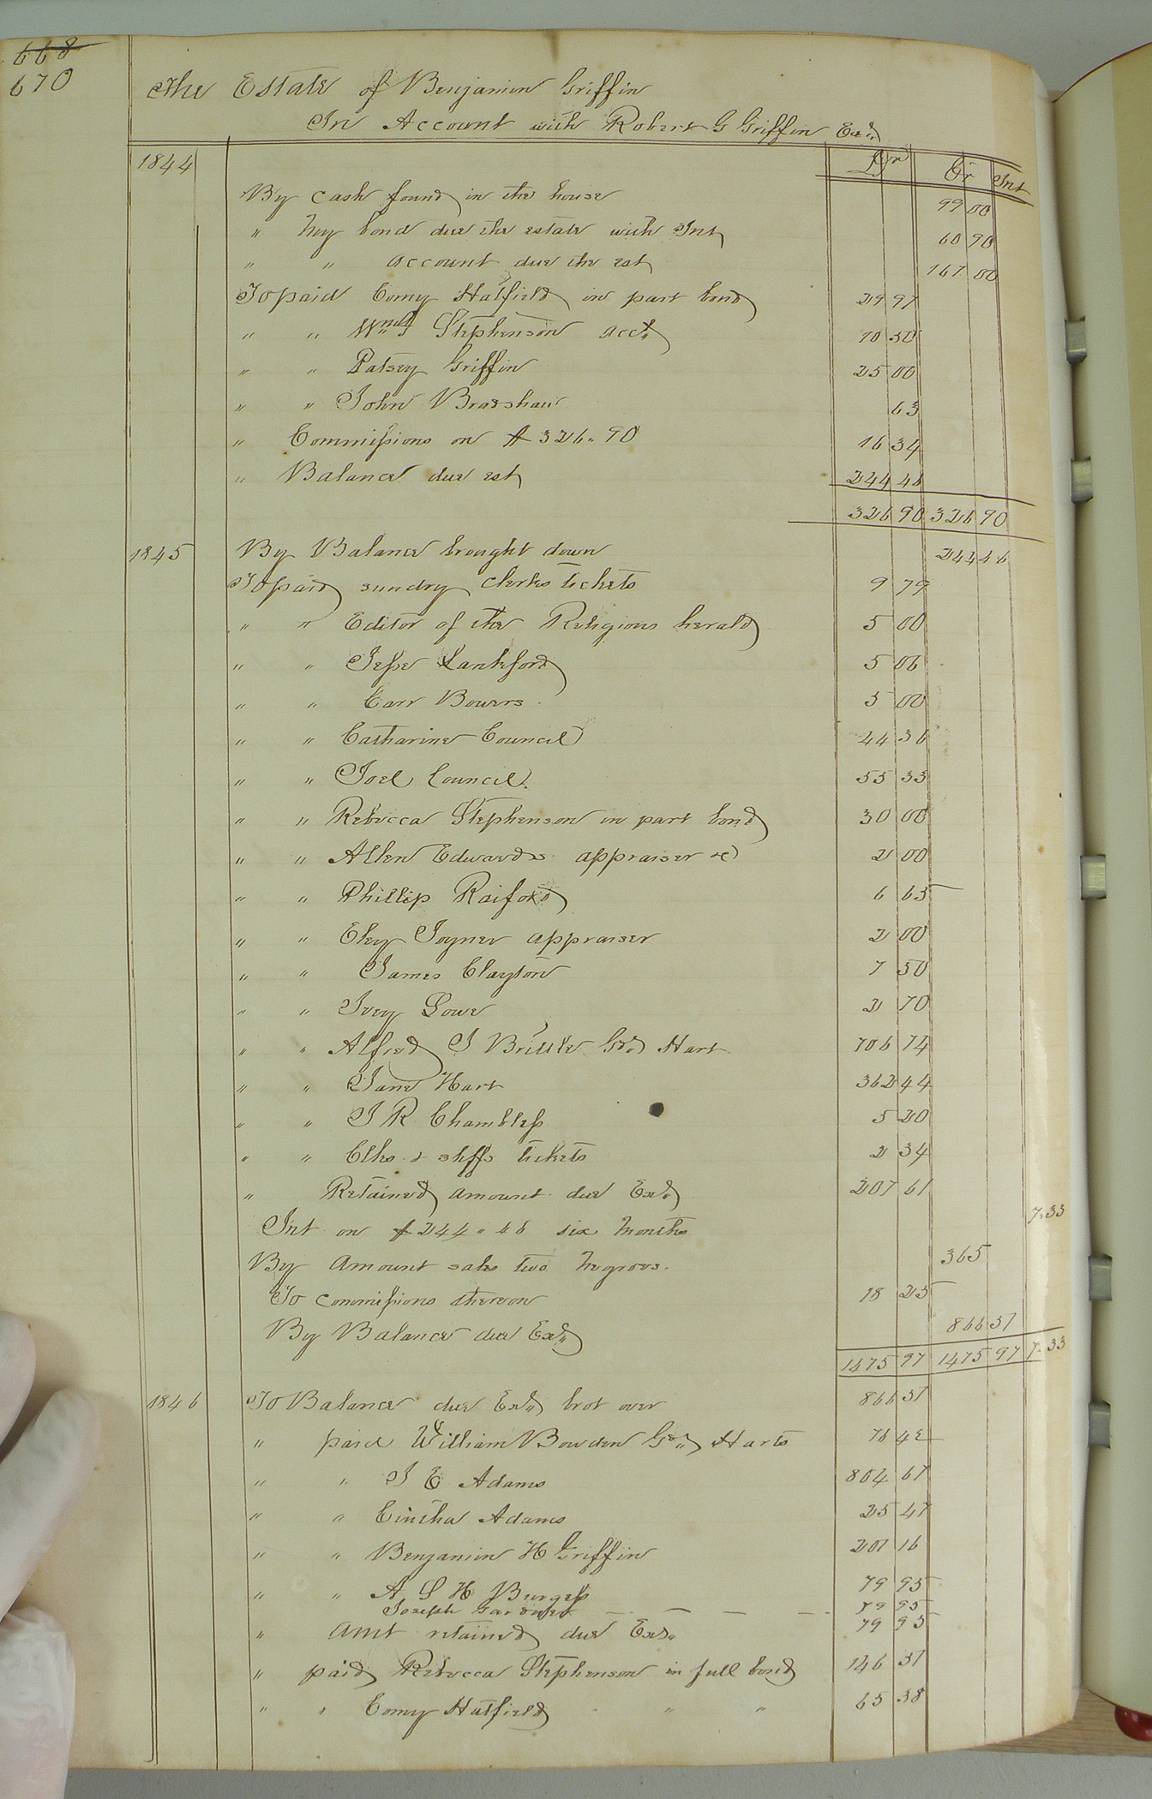 668
670
The Estate of Benjamin Griffin
In Account with Robert G Griffin Exr
1844 Dr Cr Int
By cash found in the house 99 00
" my bond due the estate with Int 60 90
" " account due the est 167 00
To paid Comy Hatfield in part bond 29 97
" " Stephenson acct 10 50
" " Patsey Griffin 25 00
" " John Bradshaw 63
" Commissions on $326.90 16 34
" Balance due est 244 46
326 90 326 90
1845 By Balance brought down 244 46
To paid sundry clerks tickets 9 79
" " Editor of the Religious herald 5 00
" " Jesse Lankford 5 06
" " Carr Bowers 5 00
" " Catharine Council 44 36
" " Joel Council 55 33
" " Rebecca Stephenson in part bond 30 00
" " Allen Edwards appraiser &c 2 00
" " Phillip Raiford 6 65
" " Eley Joyner appraiser 2 00
" " James Clayton 7 50
" " Ivey Lowe 2 70
" " Alfred J Brittle Gdn Hart 706 74
" " Jane Hart 362 44
" " J R Chambless 5 20
" " Clks & shffs tickets 2 34
" Retained amount due Exr 207 61
Int on $244.46 six months 7.33
By Amount sales two negroes 365
To commissions thereon 18 25
By Balance due Exr 866 51
1475 97 1475 97 7.33
1846 To Balance due Exr brot over 866 51
" paid William Bowden Gdn Harts 76 42
" " J E Adams 804 67
" " Cintha Adams 25 47
" " Benjamin H Griffin 207 16
" " A S H Burgess 79 95
Joseph Gardner 79 95
" Amt retained due Exr 79 95
" paid Rebecca Stephenson in full bond 146 31
" " Comy Hatfield " " 65 38